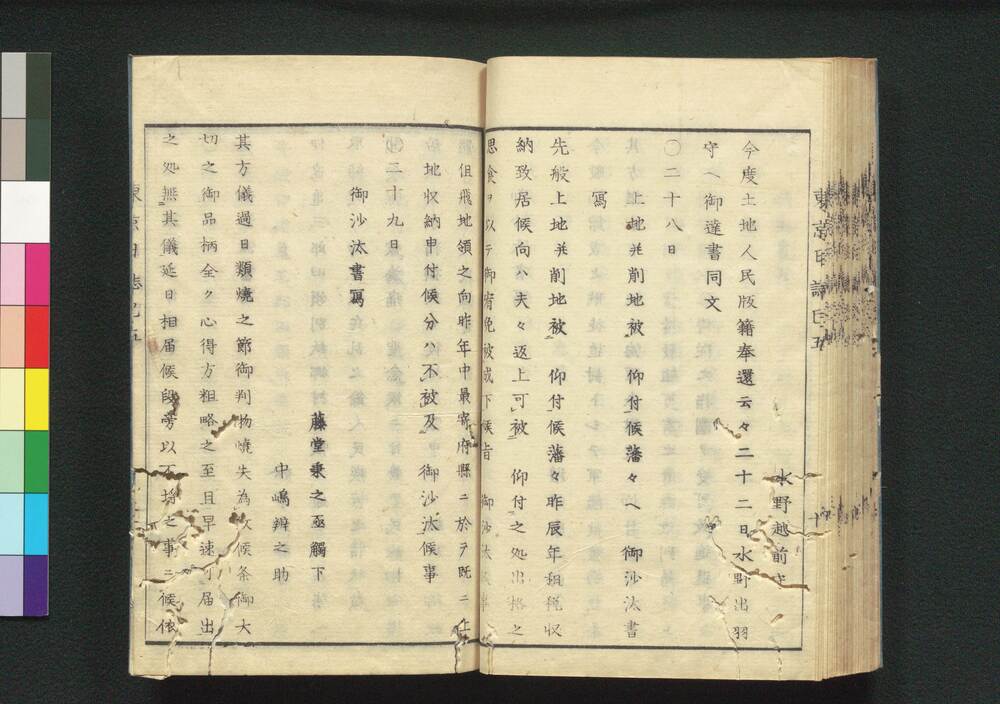 水野越前守
今度土地人民版籍奉還云々二十二日水野出羽
守ヘ御達書同文
〇二十八日
上地并削地被 仰付候藩々ヘ 御沙汰書
寫
先般上地并削地被 仰付候藩々昨辰年租税収
納致居候向ハ夫々返上可被 仰付之処出格之
思食ヲ以テ御宥免被成下候旨 御沙汰候事
但飛地領之向昨年中最寄府縣ニ於テ既ニ上
地収納申付候分ハ不被及 御沙汰候事
二十九日
御沙汰書寫
藤堂乗之亟觸下
中嶋辨之助
其方儀過日類焼之節御判物焼失為致候条御大
切之御品柄全ク心得方粗略之至且早速可届出
之処無其儀延日相届候段旁以不埒之事ニ候依
東京日誌